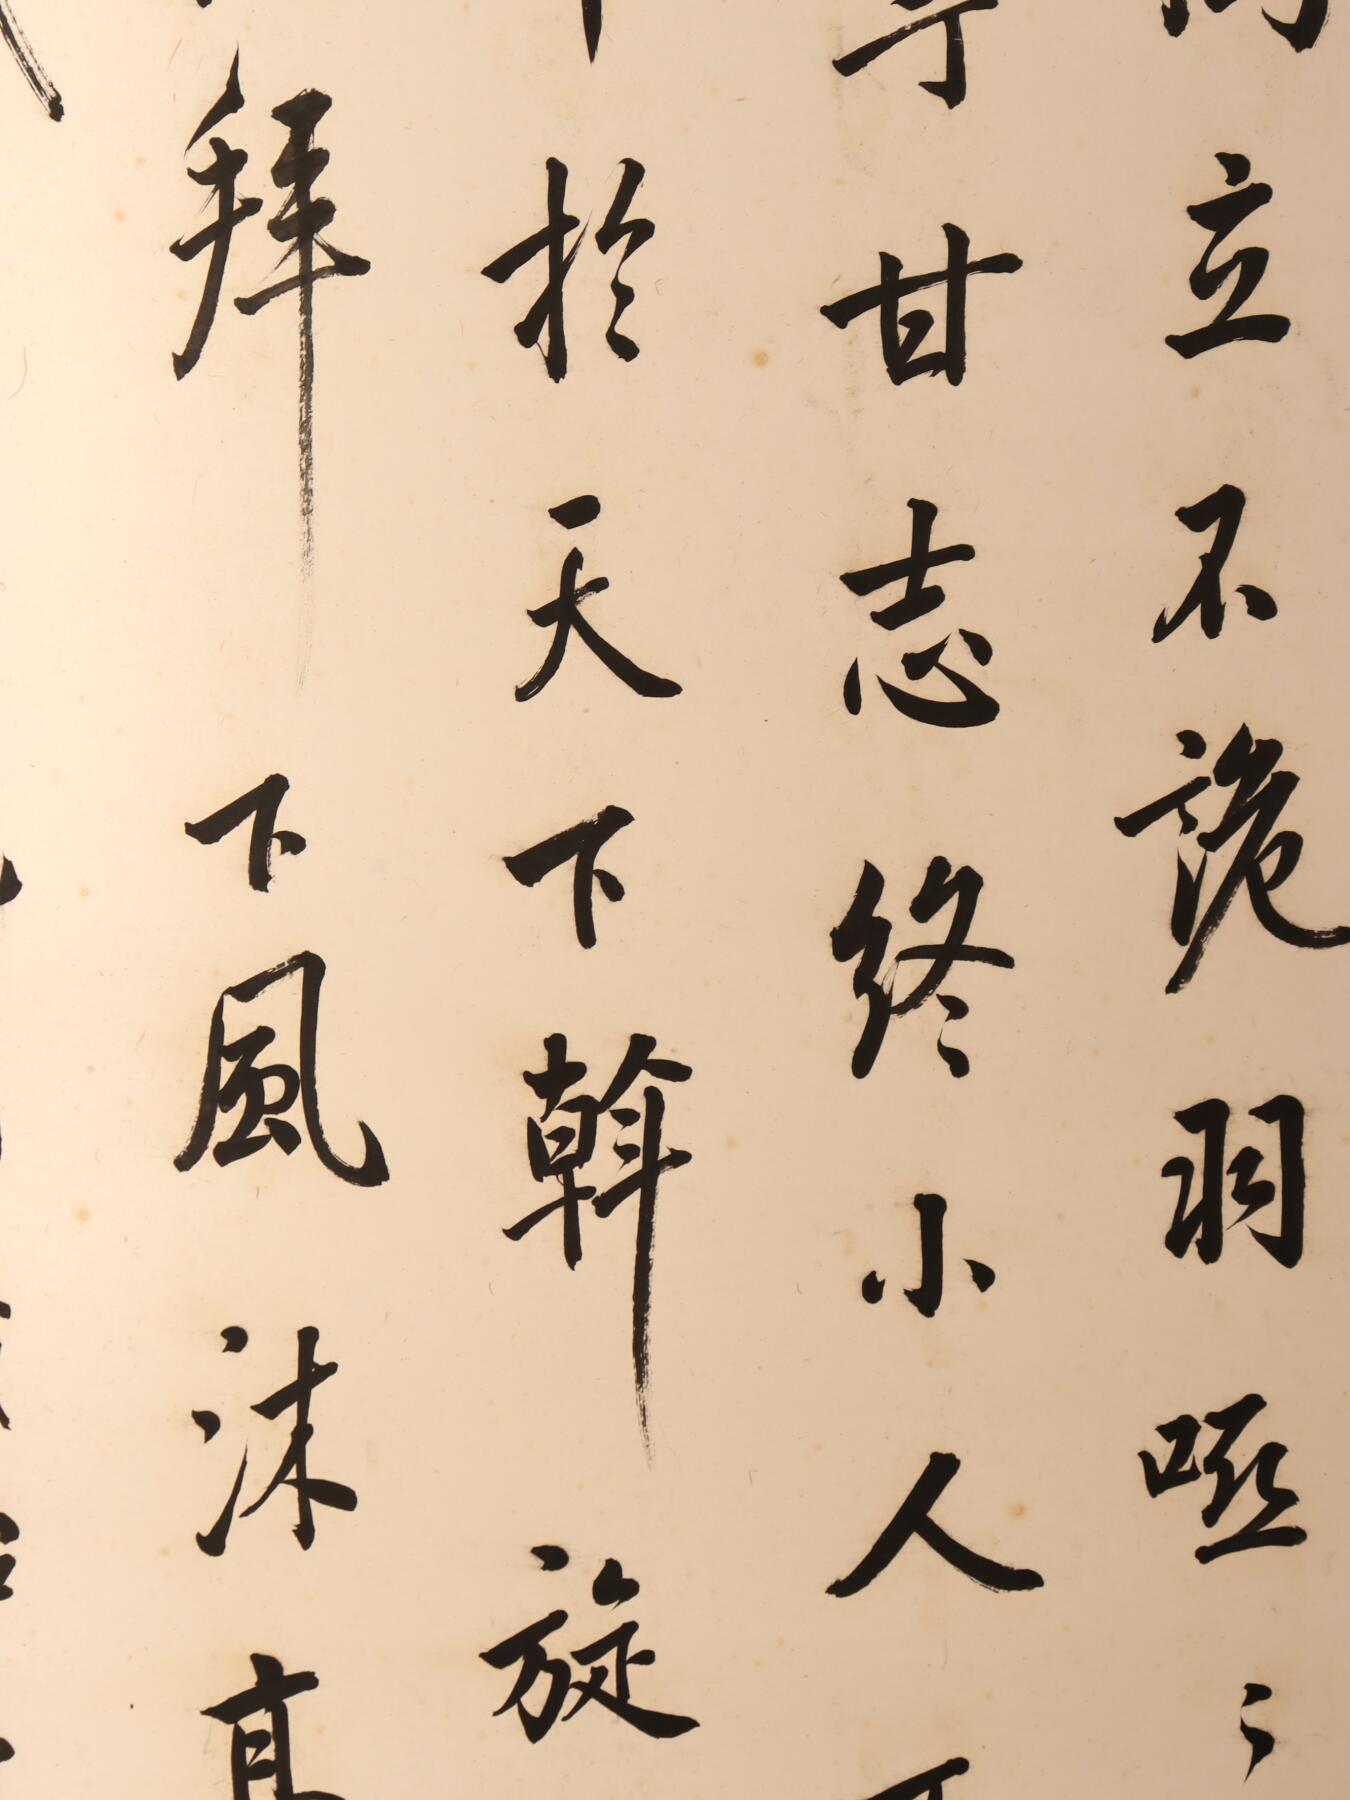 立不詭羽啞〻
甘志終小人
於天下斡旋
拜下風沫高